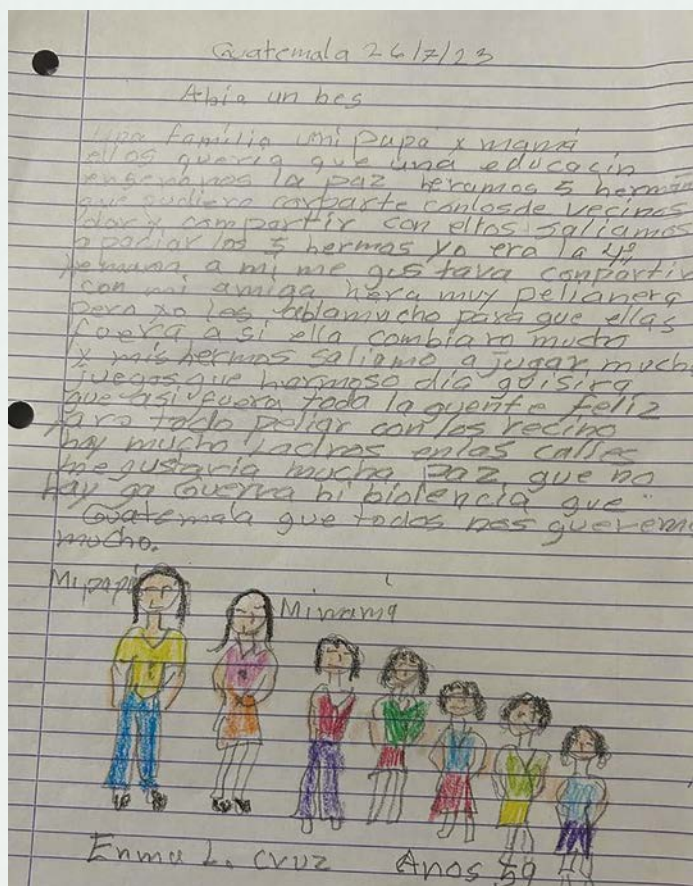 Guatemala 26/7/23
Abia un bes
una familia mi papá x mamá
ellos queria que una educacin
enseñarnos la paz heramos 5 herma
que pudiera conparte con los de vecinos
dar x compartir con ellos saliamos
a paciar los 5 hermas yo era la 4º
hermana a mi me gustava conpartir
con mi amiga hera muy pelianera
pero xo les ablamucho para que ellas
fuera a si ella combiaro mucho
x mis hermos saliamo a jugar much
juegos que hermoso dia quisira
que asi fuera toda la guente feliz
paro todo peliar con los recino
hay mucho ladros en las calles
me gustaria mucha paz que no
hay ga Guerra ni biolencia que
Guatemala que todos nos querem
mucho.
Mi papá Mi mama
Enma L. cruz Anos 59